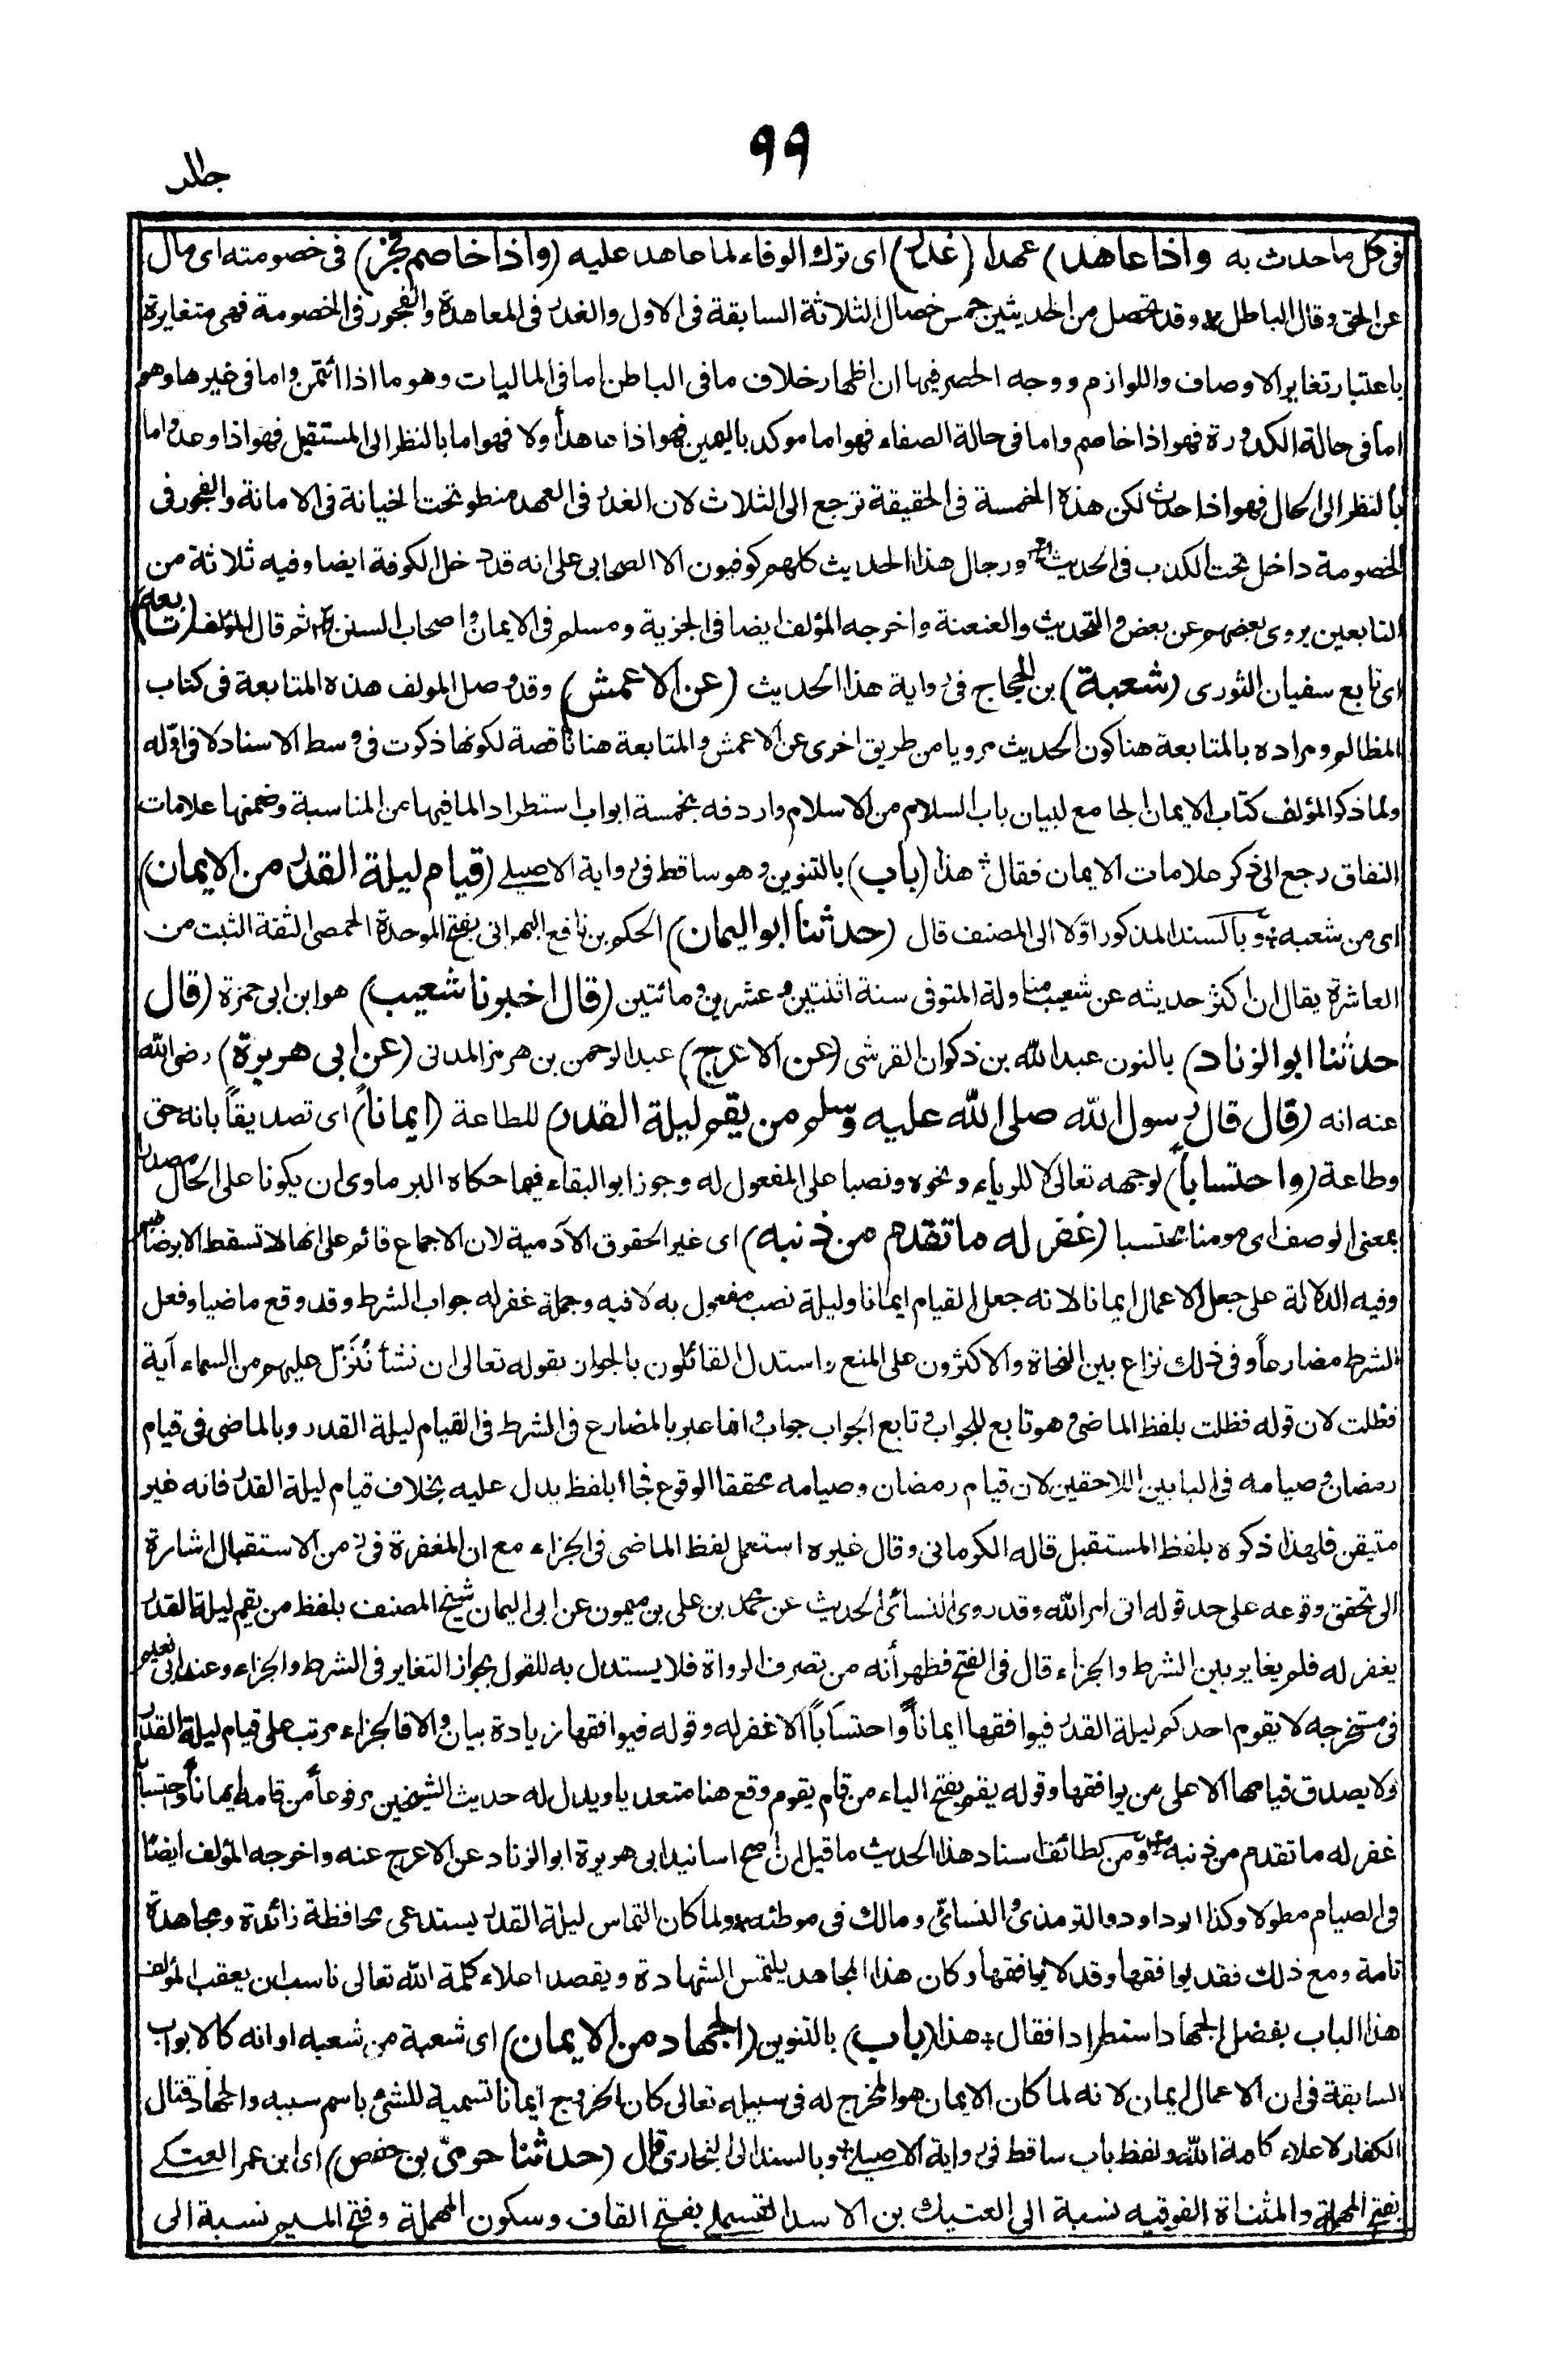 ٩٩
جلد
فى كل ما حدث به واذا عاهد) عهدا (غدر) اى ترك الوفاء لما عاهد عليه (واذا خاصم فجر) فى خصومته اى مال
عن الحق وقال الباطل * وقد تحصل من الحديثين خمس خصال الثلاثة السابقة فى الاول والغدر فى المعاهدة والفجور فى الخصومة فهى متغايرة
باعتبار تغاير الاوصاف واللوازم ووجه الحصر فيها ان اظهار خلاف ما فى الباطن اما فى الماليات وهو ما اذا ائتمن واما فى غيرها وهو
اما فى حالة الكدورة فهو اذا خاصم واما فى حالة الصفاء فهو اما موكد باليمين فهو اذا عاهد أولا فهو اما بالنظر الى المستقبل فهو اذا وعد واما
بالنظر الى الحال فهو اذا حدث لكن هذه الخمسة فى الحقيقة ترجع الى الثلاث لان الغدر فى العهد منطو تحت الخيانة فى الامانة والفجور فى
الخصومة داخل تحت الكذب فى الحديث ورجال هذا الحديث كلهم كوفيون الا الصحابى على انه قد دخل الكوفة ايضا وفيه ثلاثة من
التابعين يروى بعضهم عن بعض والتحديث والعنعنة واخرجه المؤلف ايضا فى الجزية ومسلم فى الايمان واصحاب السنن ثم قال المؤلف (تابعه)
اى تابع سفيان الثورى (شعبة) بن الحجاج فى رواية هذا الحديث (عن الاعمش) وقد وصل المولف هذه المتابعة فى كتاب
المظالم ومراده بالمتابعة هنا كون الحديث مرويا من طريق اخرى عن الاعمش والمتابعة هنا ناقصة لكونها ذكرت فى وسط الاسناد لا فى اوّله
ولما ذكر المؤلف كتاب الايمان الجامع لبيان باب السلام من الاسلام واردفه بخمسة ابواب استطراد الما فيها من المناسبة وضمنها علامات
النفاق رجع الى ذكر علامات الايمان فقال * هذا (باب) بالتنوين وهو ساقط فى رواية الاصيلے (قيام ليلة القدر من الايمان)
اى من شعبه * وبالسند المذكور اوّلا الى المصنف قال (حدثنا ابو اليمان) الحكم بن نافع البهرانى بفتح الموحدة الحمصى الثقة الثبت من
العاشرة يقال ان اكثر حديثه عن شعيب مناولة المتوفى سنة اثنتين وعشرين ومائتين (قال اخبرنا شعيب) هو ابن ابى حمزة (قال
حدثنا ابو الزناد) بالنون عبد الله بن ذكوان القرشى (عن الاعرج) عبد الرحمن بن هرمز المدنى (عن ابى هريرة) رضى الله
عنه انه (قال قال رسول الله صلى الله عليه وسلم من يقم ليلة القدر) للطاعة (ايماناً) اى تصديقاً بانه حق
وطاعة (واحتساباً) لوجهه تعالى لا للرياء ونحوه ونصبا على المفعول له وجوز ابو البقاء فيما حكاه البرماوى ان يكونا على الحال مصدرا
بمعنى الوصف اى مومنا محتسبا (غفر له ما تقدم من ذنبه) اى غير الحقوق الآدمية لان الاجماع قائم على انها لا تسقط الا برضاهم
وفيه الدلالة على جعل الاعمال ايمانا لانه جعل القيام ايمانا وليلة نصب مفعول به لا فيه وجملة غفر له جواب الشرط وقد وقع ماضيا وفعل
الشرط مضارعاً وفى ذلك نزاع بين النحاة والاكثرون على المنع واستدل القائلون بالجواز بقوله تعالى ان نشأ نُنَزّل عليهم من السماء آية
فظلت لان قوله فظلت بلفظ الماضى وهو تابع للجواب وتابع الجواب جواب وانما عبر بالمضارع فى الشرط فى القيام ليلة القدر وبالماضى فى قيام
رمضان وصيامه فى البابين اللاحقين لان قيام رمضان وصيامه محققا الوقوع فجاا بلفظ يدل عليه بخلاف قيام ليلة القدر فانه غير
متيقن فلهذا ذكره بلفظ المستقبل قاله الكرمانى وقال غيره استعمل لفظ الماضى فى الجزاء مع ان المغفرة فى زمن الاستقبال اشارة
الى تحقق وقوعه على حد قوله اتى امر الله وقد روى النسائى الحديث عن محمد بن على بن ميمون عن ابى اليمان شيخ المصنف بلفظ من يقم ليلة القدر
يغفر له فلم يغاير بين الشرط والجزاء قال فى الفتح فظهر أنه من تصرف الرواة فلا يستدل به للقول بجواز التغاير فى الشرط والجزاء وعند ابى نعيم
فى مستخرجه لا يقوم احدكم ليلة القدر فيوافقها ايماناً واحتساباً الا غفر له وقوله فيوافقها زيادة بيان والا فالجزاء مرتب على قيام ليلة القدر
ولا يصدق قيامها الا على من يوافقها وقوله يقم بفتح الياء من قام يقوم وقع هنا متعديا ويدل له حديث الشيخين مرفوعاً من قامه ايماناً واحتسابا
غفر له ما تقدم من ذنبه ومن لطائف اسناد هذا الحديث ما قيل ان اصح اسانيد ابى هريرة ابو الزناد عن الاعرج عنه واخرجه المؤلف ايضا
فى الصيام مطولا وكذا ابو داود والترمذى والنسائى ومالك فى موطئه * ولما كان التماس ليلة القدر يستدعى محافظة زائدة ومجاهدة
تامة ومع ذلك فقد يوافقها وقد لا يوافقها وكان هذا المجاهد يلتمس الشهادة ويقصد اعلاء كلمة الله تعالى ناسب ان يعقب المؤلف
هذا الباب بفضل الجهاد استطرادا فقال * هذا (باب) بالتنوين (الجهاد من الايمان) اى شعبة من شعبه او انه كالابواب
السابقة فى ان الاعمال ايمان لانه لما كان الايمان هو المخرج له فى سبيله تعالى كان الخروج ايمانا تسمية للشئ باسم سببه والجهاد قتال
الكفار لاعلاء كلمة الله ولفظ باب ساقط فى رواية الاصيلے * وبالسند الى البخارى قال (حدثنا حرمىّ بن حفص) اى ابن عمر العتكے
بفتح المهملة والمثناة الفوقيه نسبة الى العتيك بن الاسد القسملے بفتح القاف وسكون المهملة وفتح الميم نسبة الى